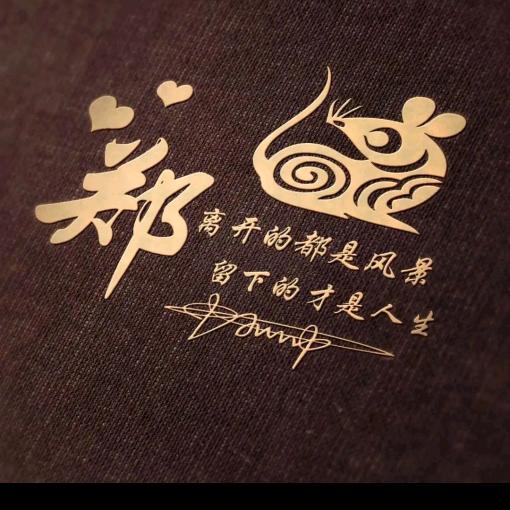 郑
离开的都是风景
留下的才是人生